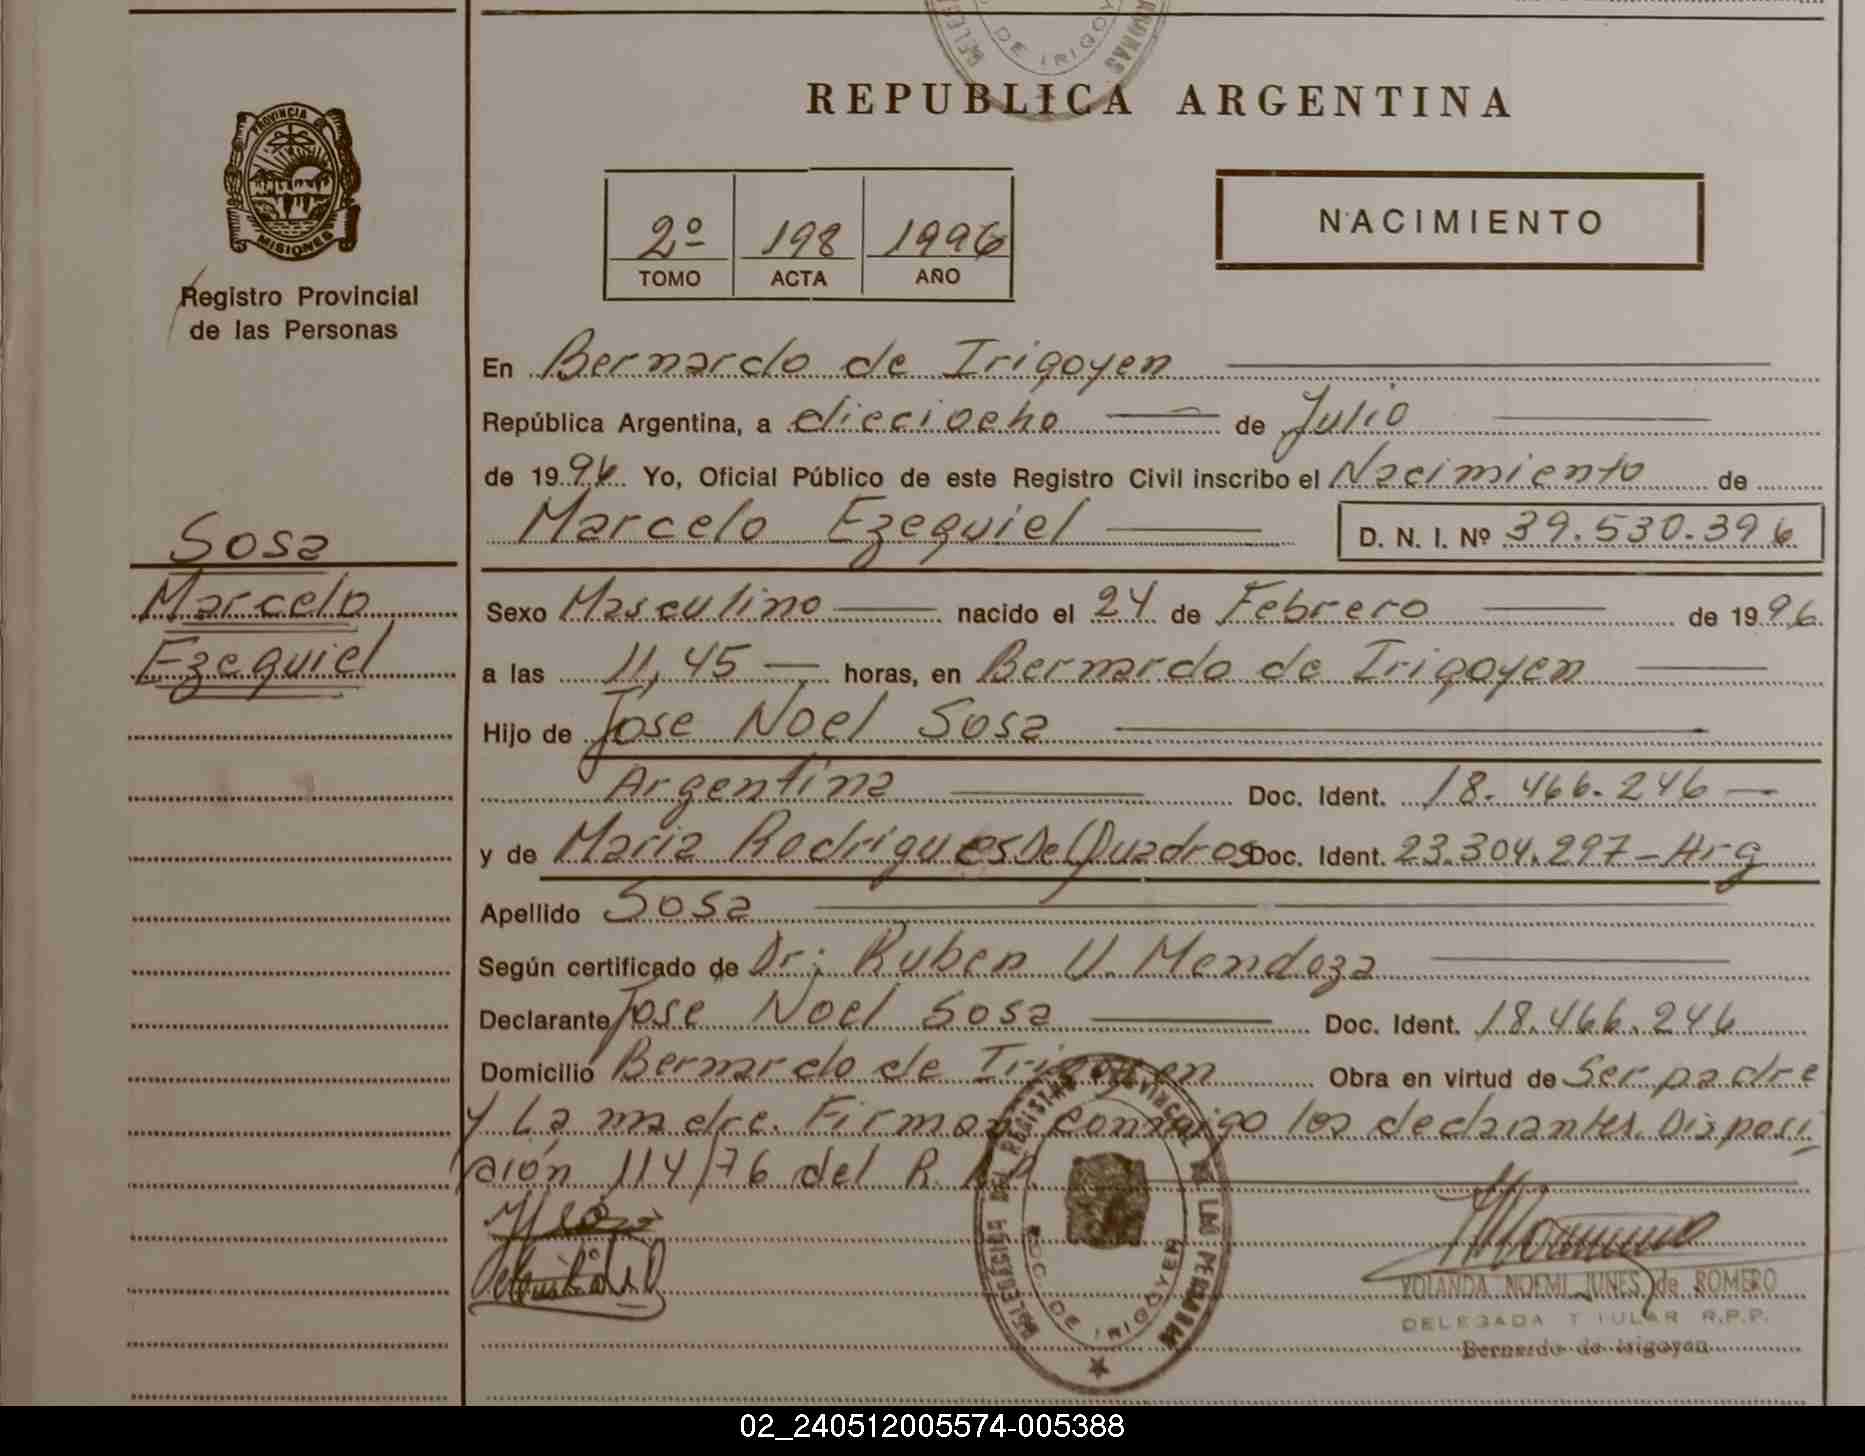 DE IRIGOY
REPUBLICA ARGENTINA
PROVINCIA
MISIONES
Registro Provincial
de las Personas
2º 198 1996
TOMO ACTA AÑO
NACIMIENTO
En Bernardo de Irigoyen
República Argentina, a dieciocho de Julio
de 1996 Yo, Oficial Público de este Registro Civil inscribo el Nacimiento de
Marcelo Ezequiel D. N. I. Nº 39.530.396
Sosa
Marcelo
Ezequiel
Sexo Masculino nacido el 24 de Febrero de 1996
a las 11,45 horas, en Bernardo de Irigoyen
Hijo de Jose Noel Sosa
Argentina Doc. Ident. 18.466.246
y de Maria Rodrigues De Quadros Doc. Ident. 23.304.297 - Arg
Apellido Sosa
Según certificado de Dr: Ruben U. Mendoza
Declarante Jose Noel Sosa Doc. Ident. 18.466.246
Domicilio Bernardo de Irigoyen Obra en virtud de Ser padre
y La madre. Firman conmigo los declarantes. Disposi
ción 114/76 del R.P.P.
DEL REGISTRO PROVINCIAL DE LAS PERSONAS
DE IRIGOYEN
YOLANDA NOEMI JUNES de ROMERO
DELEGADA TITULAR R.P.P.
Bernardo de Irigoyen
02_240512005574-005388